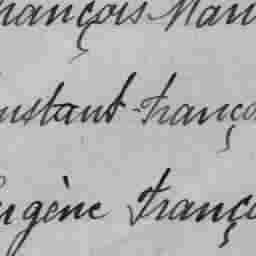 rançois Mau
nstant franço
Eugène franço